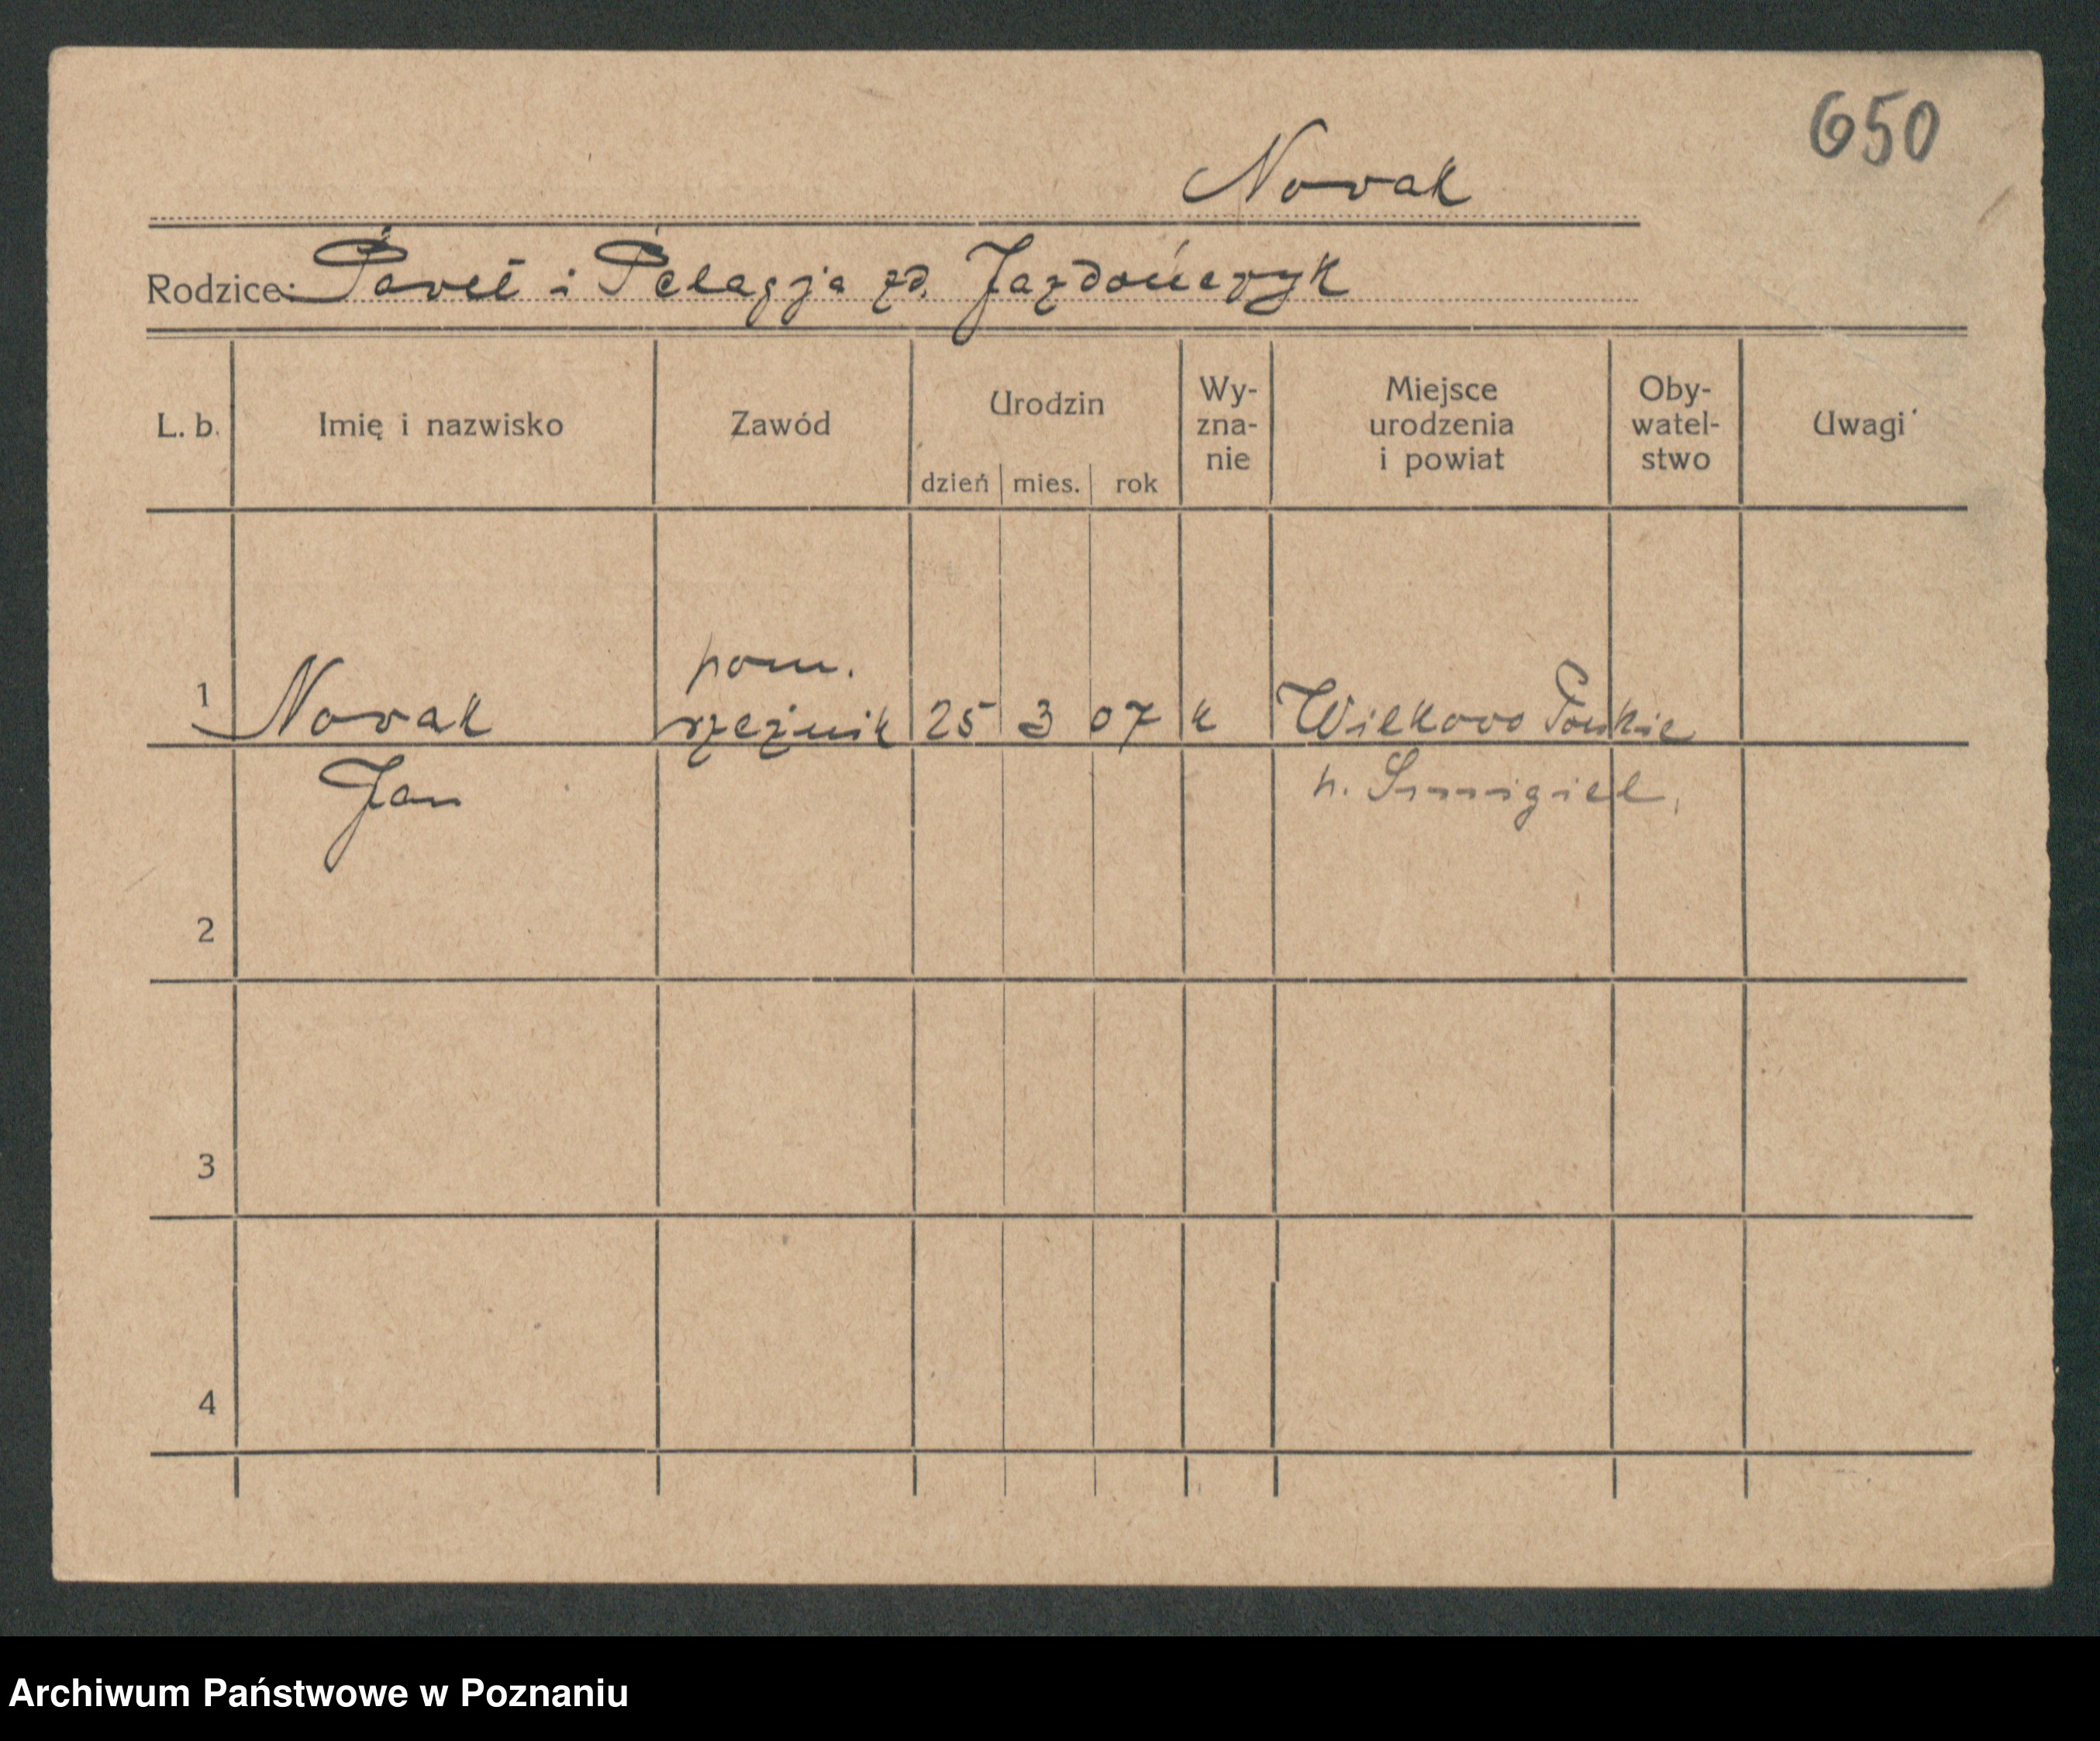 650
Nowak
Rodzice: Paweł i Pelagja zd. Jazdończyk
L. b. Imię i nazwisko Zawód Urodzin dzień mies. rok Wy-zna-nie Miejsce urodzenia i powiat Oby-watel-stwo Uwagi
pom.
1 Nowak rzeźnik 25 3 07 k Wilkowo Polskie
Jan p. Szmigiel.
2
3
4
Archiwum Państwowe w Poznaniu